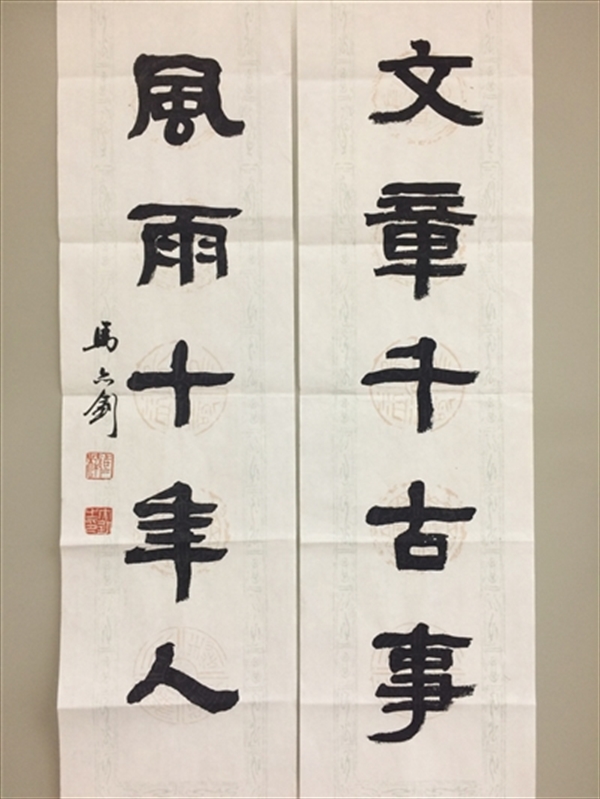 文章千古事
風雨十年人
馬